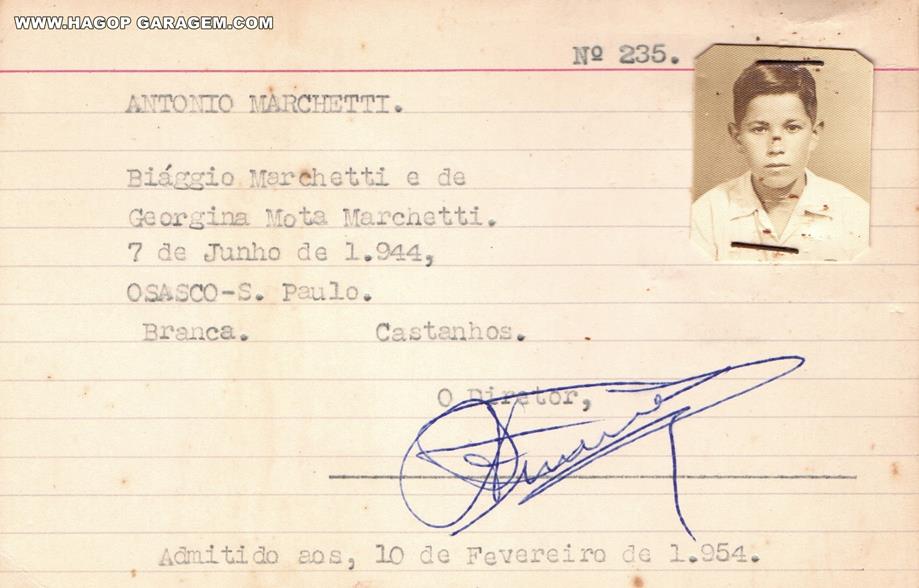 WWW.HAGOP GARAGEM.COM
Nº 235.
ANTONIO MARCHETTI.
Biággio Marchetti e de
Georgina Mota Marchetti.
7 de Junho de 1.944,
OSASCO-S. Paulo.
Branca. Castanhos.
O Diretor,
Admitido aos, 10 de Fevereiro de 1.954.